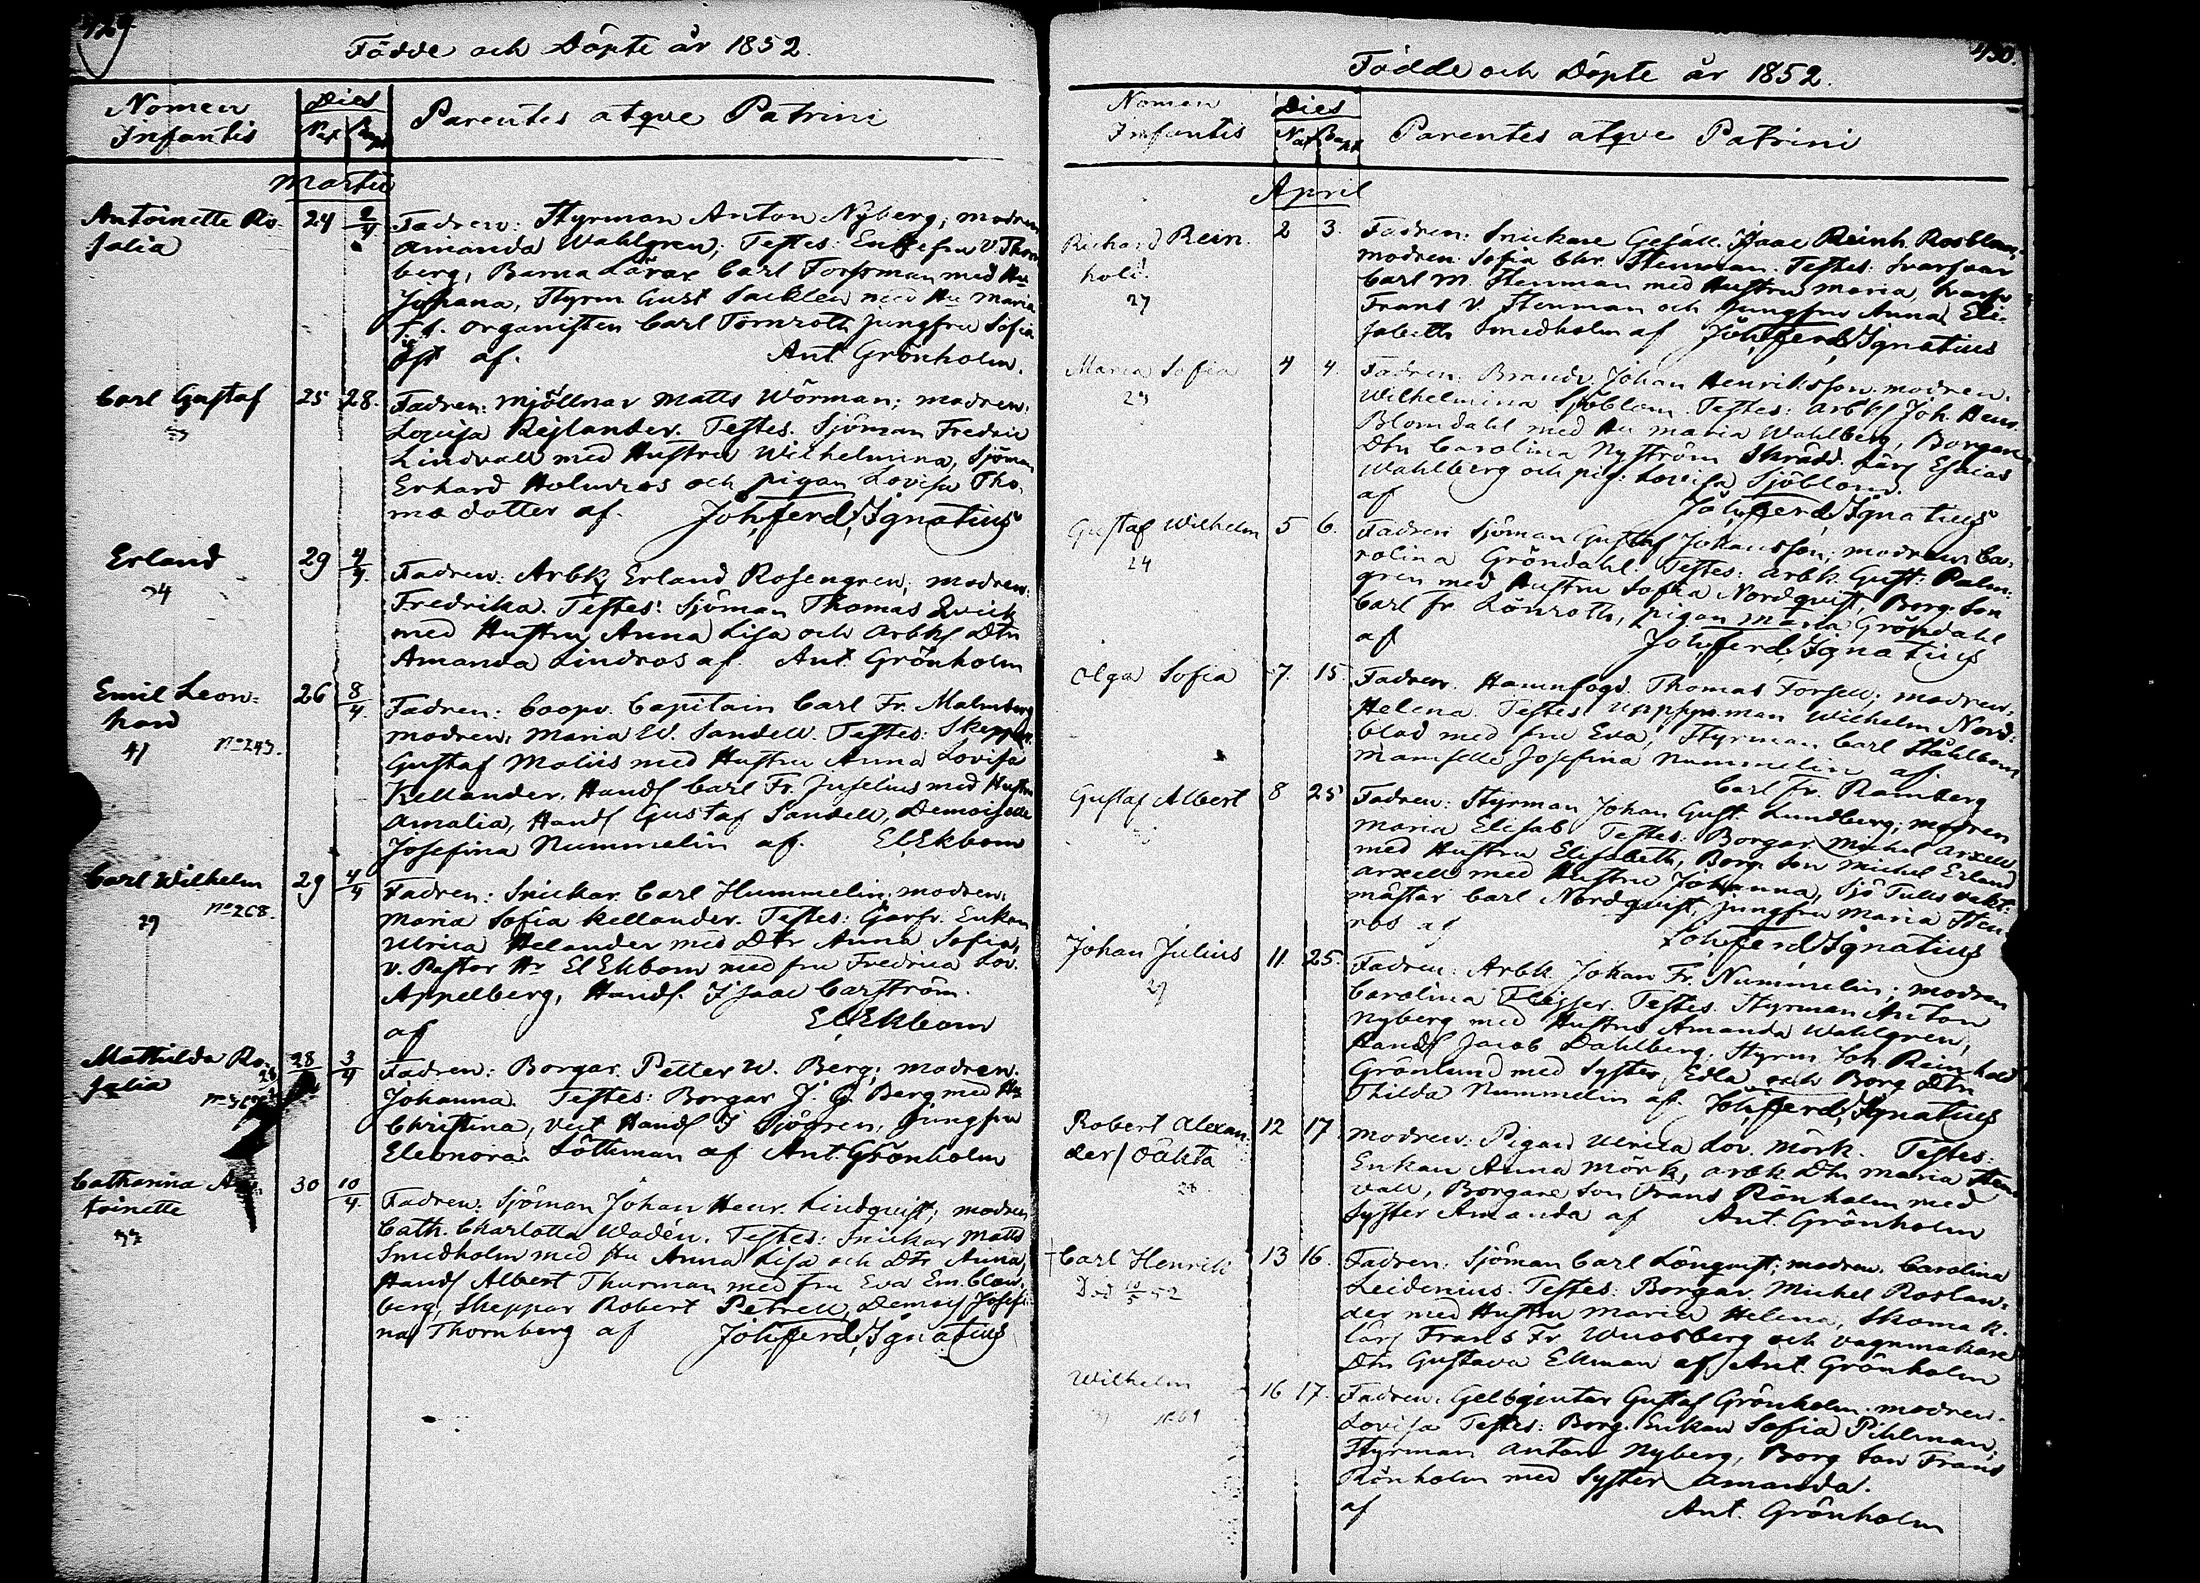 429
Födde och Döpte år 1852.
Nomen Infantis
Dies
Nat Bapt
Parentes atqve Patrini
Martii
Antoinette Ro-
salia
24 2/4
Fadren: Styrman Anton Nyberg; modren
Amanda Wahlgren; Testes: Enkefru V Thorn
berg, Barna Lärar Carl Forssman med Hu
Johana, Styrm Gust Sacklen med Hu Maria
t.f. organisten Carl Törnroth Jungfru Sofia
Öst af. Ant. Grönholm.
Carl Gustaf
25 28.
Fadren: Mjöllnar Matts Wörman; modren:
Lovisa Rejlander. Testes. Sjöman Fredric
Lindvall med Hustru Wilhelmina, Sjöman
Erhard Holmros och pigan Lovisa Tho-
mæ dotter af. Joh. Ferd. Ignatius
Erland
24
29 4/4.
Fadren: Arbk Erland Rosengren; modren:
Fredrika. Testes: Sjöman Thomas Qvick
med Hustru Anna Lisa och Arbks Dtn
Amanda Lindros af. Ant. Grönholm
Emil Leon-
hard
41 No 243.
26 8/4.
Fadren: Coopv. Capitain Carl Fr. Malmberg
modren: Maria W. Sandell. Testes: Skeppar
Gustaf Moliis med Hustru Anna Lovisa
Kellander, Handl Carl Fr. Juselius med Hustru
Amalia, Handl Gustaf Sandell, Demoiselle
Josefina Nummelin af. El Ekbom
Carl Wilhelm
No 268.
29
29 4/4
Fadren: Snickar Carl Hummelin; modren:
Maria Sofia Kellander. Testes: Garfv. Enkan
Ulrica Helander med Dtr Anna Sofia,
v. Pastor Hr El Ekbom med fru Fredrica Lov.
Appelberg, Handl. Isaac Carström.
af El Ekbom
Mathilda Ro-
salia
28 3/4
Fadren: Borgar Petter W. Berg; modren:
Johanna. Testes: Borgar J. G. Berg med Hu
Christina, Vict Handl J Sjögren, Jungfru
Eleonora Löthman af Ant. Grönholm
Catharina An-
toinette
30 10/4.
Fadren: Sjöman Johan Henr. Lindqvist; modren
Cath. Charlotta Wadén. Testes: Snickar Matts
Smedholm med Hu Anna Lisa och Dtr Anna,
Handl Albert Thurman med fru Eva Em. Blom-
berg, Skeppar Robert Petrell, Demois Josefi-
na Thornberg af Joh. Ferd. Ignatius
430.
Födde och Döpte år 1852.
Nomen Infantis
Dies
Nat Bapt
Parentes atqve Patrini
April
Richard Rein-
hold
27
2 3.
Fadren: Snickare Gesäll Isaac Reinh. Rosblom,
modren: Sofia Chr. Stenman. Testes: Svarfvar
Carl M. Stenman med Hustru Maria,
Frans V. Stenman och Jungfru Anna Eli-
sabeth Smedholm af Joh. Ferd. Ignatius
Maria Sofia
4 4.
Fadren: Brandv. Johan Henriksson. modren:
Wilhelmina Sjöblom. Testes: Arbks Joh. Henr.
Blomdahl med Hu Maria Wahlberg, Borgare
Dtn Carolina Nyström Skrädd. Lärl Esaias
Wahlberg och pig: Lovisa Sjöblom.
af Joh. Ferd. Ignatius
Gustaf Wilhelm
24
5 6.
Fadren Sjöman Gustaf Johansson; modren: Ca-
rolina Gröndahl. Testes: Arbk. Gust. Palm-
gren med Hustru Sofia Nordqvist, Borg. Son
Carl Fr. Lönroth, pigan Maria Gröndahl
af Joh. Ferd. Ignatius
Olga Sofia
7. 15.
Fadren. Hamnfogd. Thomas Forsell; modren:
Helena. Testes: Uppsyn.man Wilhelm Nord-
blad med fru Eva, Styrman Carl Ståhlbom
Mamselle Josefina Nummelin af.
Carl Fr. Ramberg
Gustaf Albert
8 25
Fadren: Styrman Johan Gust. Lundberg; modren
Maria Elisab Testes: Borgar Michel Arxell
med Hustru Elisabeth, Borg. Son Michel Erland
Arxell med Hustru Johanna, Sjö Tulls vakt:
mästar Carl Nordqvist, Jungfru Maria Sten-
ros af Joh. Ferd. Ignatius
Johan Julius
29
11 25.
Fadren: Arbk. Johan Fr. Nummelin; modren
Carolina Flisser. Testes. Styrman Anton
Nyberg med Hustru Amanda Wahlgren,
Handl Jacob Dahlberg, Styrm Joh Reinhold
Grönlund med Syster Edla och Borg Dtn
Thilda Nummelin af. Joh. Ferd. Ignatius
Robert Alexan-
der / oäkta
28
12 17
modren: Pigan Ulrica Lov. Mörk. Testes:
Enkan Anna Mörk, arbk Dtn Maria Sten
vall, Borgare Son Frans Rönholm med
Syster Amanda af Ant. Grönholm
† Carl Henrik
Död 10/5 52
13 16.
Fadren: Sjöman Carl Lönqvist; modren: Carolina
Leidenius. Testes: Borgar Michel Roslan-
der med Hustru Maria Helena, Skomak.
Lärl Frans Fr. Wuosberg och vagnmakare
Dtn Gustava Ekman af Ant. Grönholm
Wilhelm
16 17.
Fadren: Gelbgjutar Gustaf Grönholm. modren:
Lovisa Testes: Borg. Enkan Sofia Pihlman,
Styrman Anton Nyberg, Borg Son Frans
Rönholm med Syster Amanda.
af Ant. Grönholm